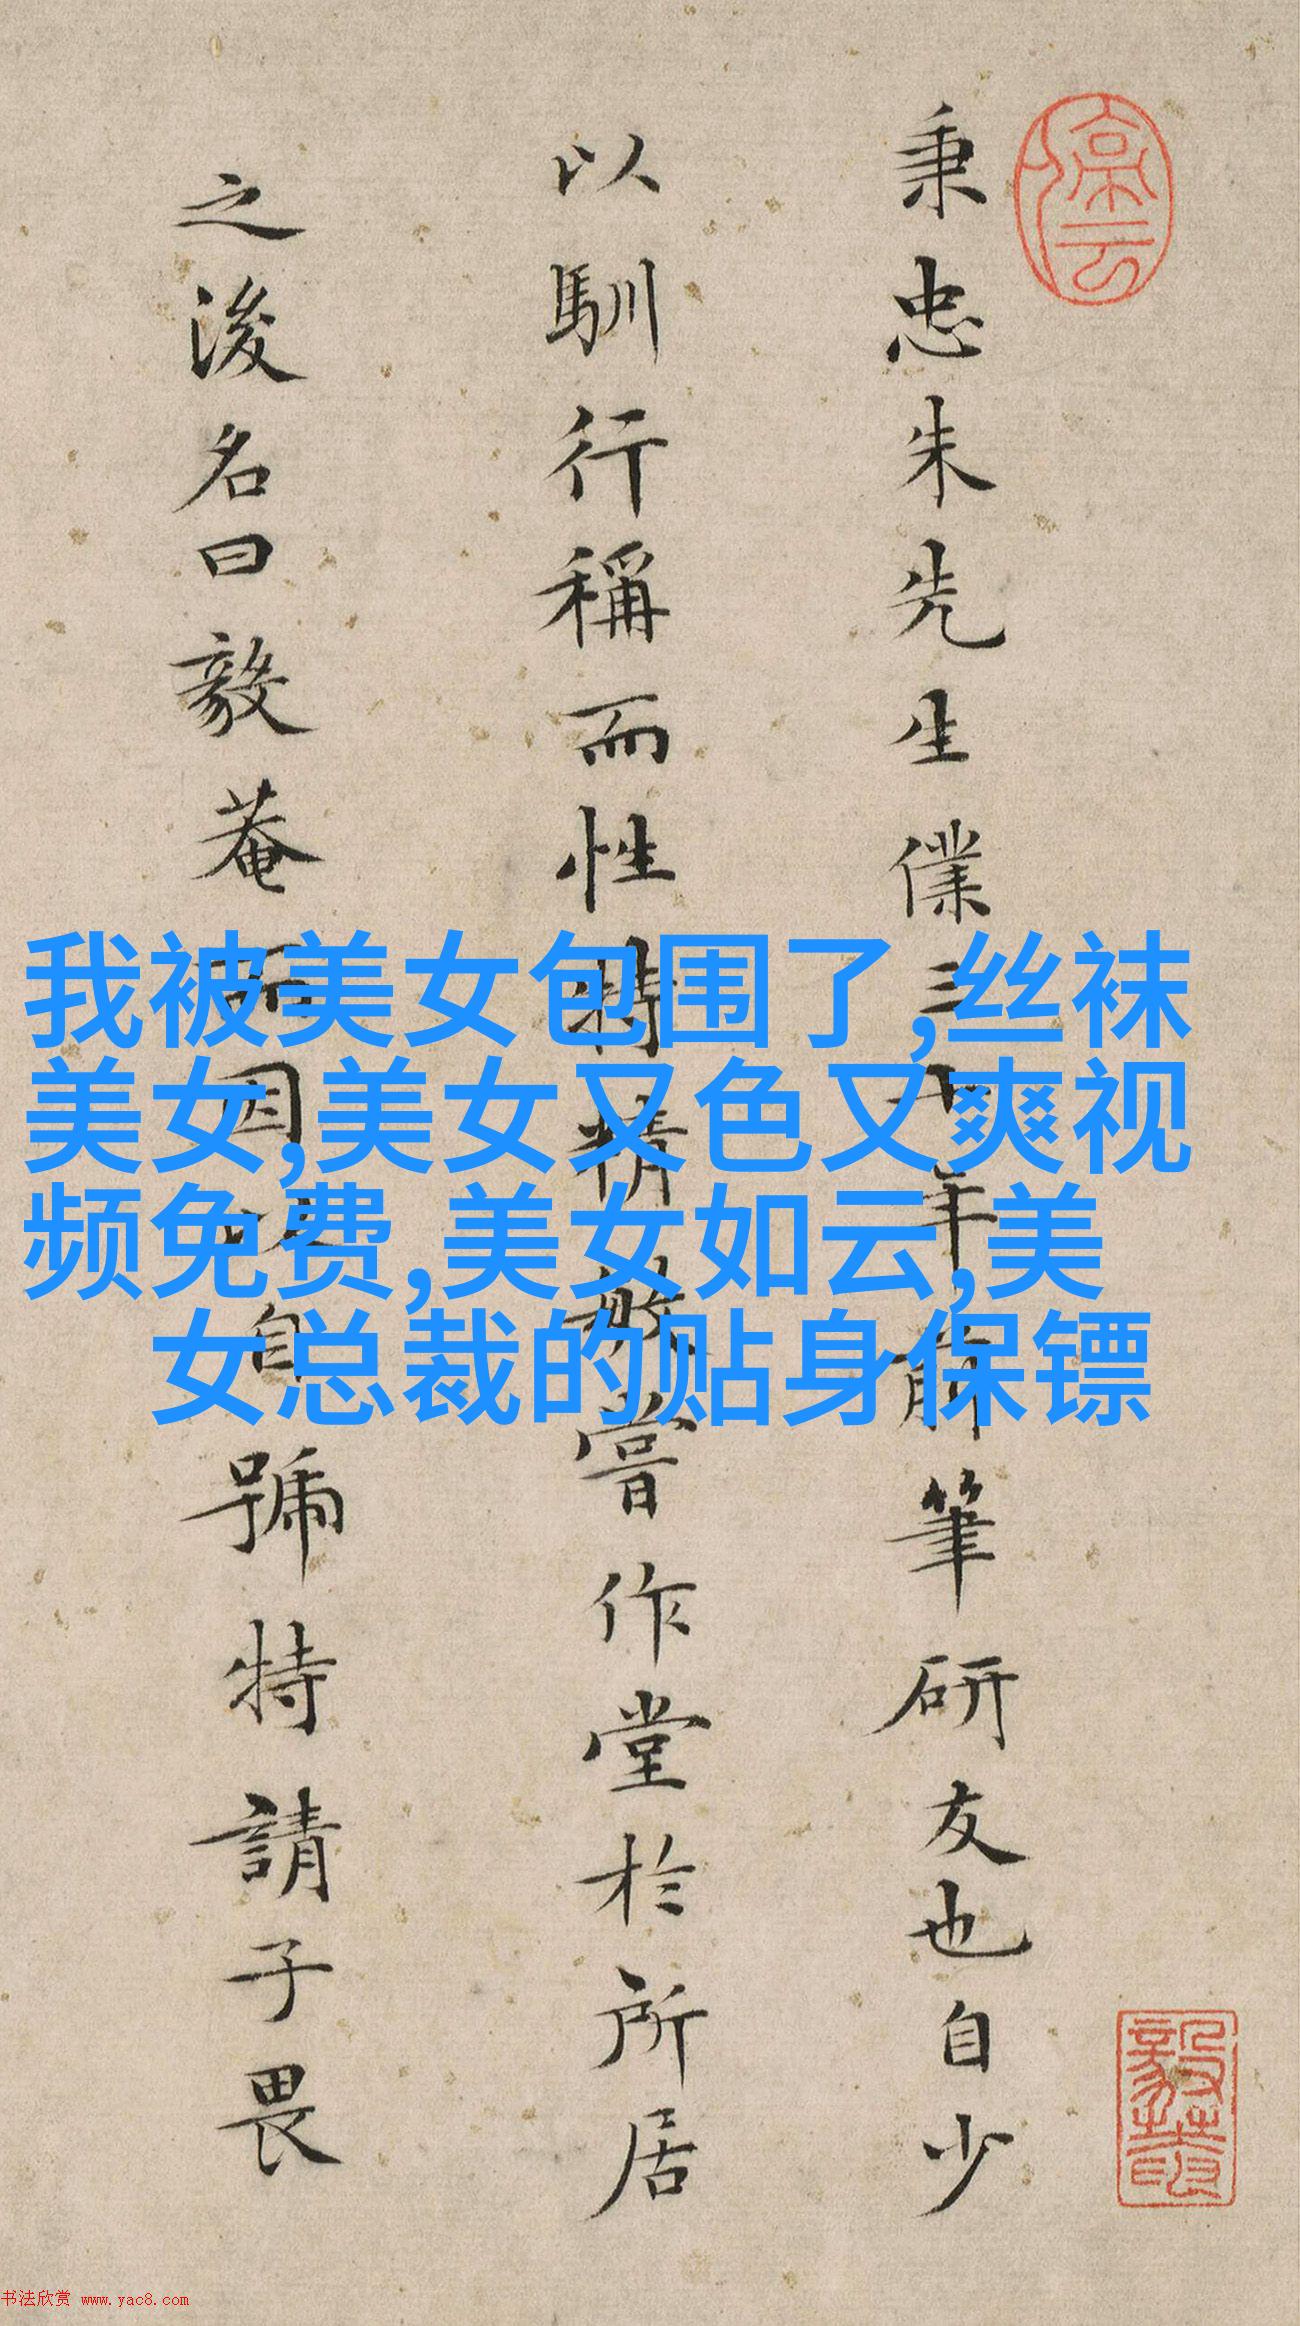 秉忠朱先生僕三十年前筆研友也自少
以馴行稱而性特精敏嘗作堂於所居
之後名曰毅菴所因以自號特請子畏
我被美女包围了,丝袜
美女,美女又色又爽视
频免费,美女如云,美
女总裁的贴身保镖
书法欣赏 www.yac8.com